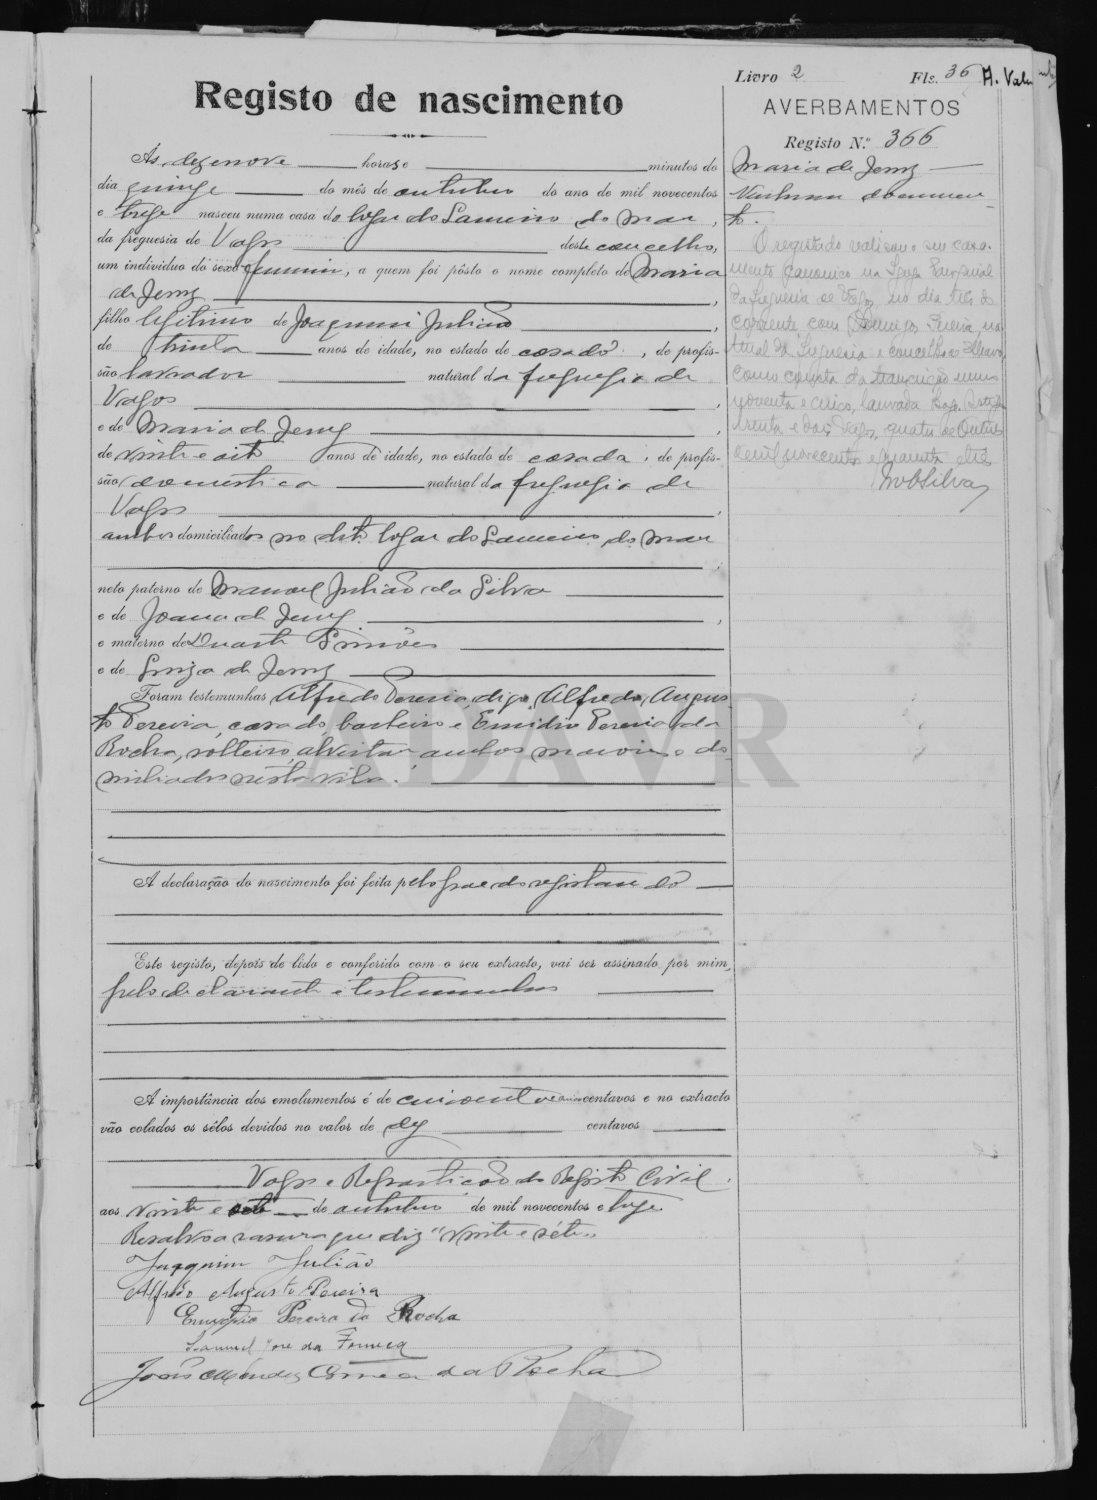 Livro 2 Fls. 36 A. Val
Registo de nascimento
AVERBAMENTOS
Registo N.º 366
Maria de Jesus
Nenhum documen-
to.
O registado realizou o seu casa-
mento canonico na Igreja Paroquial
da freguesia de Vagos no dia três do
corrente, com Domingos Pereira, na-
tural da freguesia e concelho de Ilhavo
como consta da transcrição numero
noventa e cinco, lavrada
trinta e dois Vagos, quatro de Outubro
de mil novecentos e quarenta e três
Silva
Ás dezenove horas e minutos do
dia quinze do mês de outubro do ano de mil novecentos
e treze nasceu numa casa do logar do Lameiro do Mar,
da freguesia de Vagos deste concelho,
um individuo do sexo feminino, a quem foi pôsto o nome completo de Maria
de Jesus,
filho legitimo de Joaquim Julião,
de trinta anos de idade, no estado de casado, de profis-
são lavrador natural da freguesia de
Vagos,
e de Maria de Jesus,
de vinte e oito anos de idade, no estado de casada, de profis-
são domestica natural da freguesia de
Vagos,
ambos domiciliados no dito logar do Lameiro do Mar
neto paterno de Manoel Julião da Silva
e de Joana de Jesus,
e materno de Duarte Simões
e de Luiza de Jesus
Foram testemunhas Alfredo Pereira, digo, Alfredo Augus-
to Pereira, casado, barbeiro e Emidio Pereira da
Rocha, solteiro, ambos maiores e do-
miciliados nesta vila.
A declaração do nascimento foi feita pelo pae do registando
Este registo, depois de lido e conferido com o seu extracto, vai ser assinado por mim,
pelo declarante e testemunhas
A importância dos emolumentos é de centavos e no extracto
vão colados os sêlos devidos no valor de dez centavos
Vagos e Repartição do Registo Civil,
aos vinte e sete de outubro de mil novecentos e treze
Resalvo a rasura que diz "vinte e séte"
Joaquim Julião
Alfredo Augusto Pereira
Emygdio Pereira da Rocha
Manuel José da Fonseca
João Mendes Correia da Rocha
ADAVR